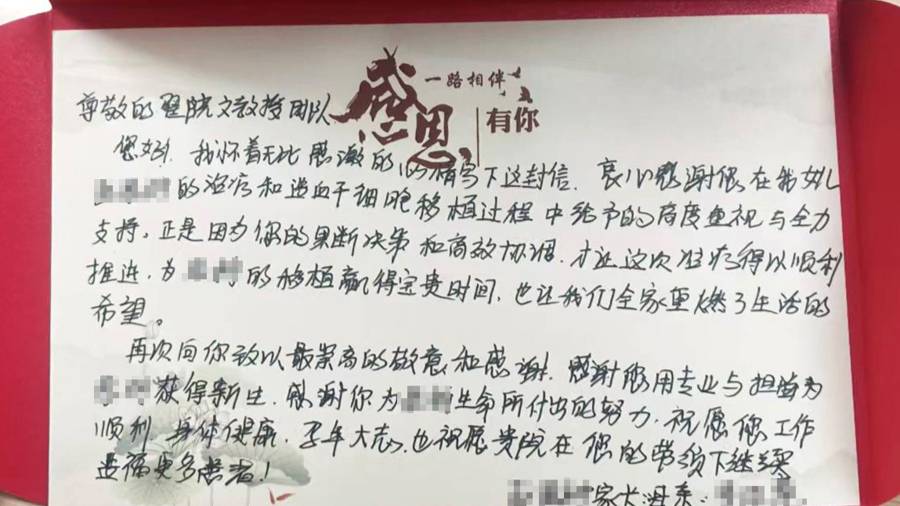 感恩
一路相伴
有你
尊敬的 院文教授团队
您好！我怀着无比感激的心情写下这封信。衷心感谢您在我女儿
的治疗和造血干细胞移植过程中给予的高度重视与全力
支持。正是因为您的果断决策和高效协调，才让这次治疗得以顺利
推进，为 的移植赢得宝贵时间，也让我们全家重燃了生活的
希望。
再次向你致以最崇高的敬意和感谢！感谢您用专业与担当为
获得新生，感谢你为 生命所付出的努力，祝愿您工作
顺利 身体健康，也祝愿贵院在您的带领下继续
造福更多患者！
家长母亲：